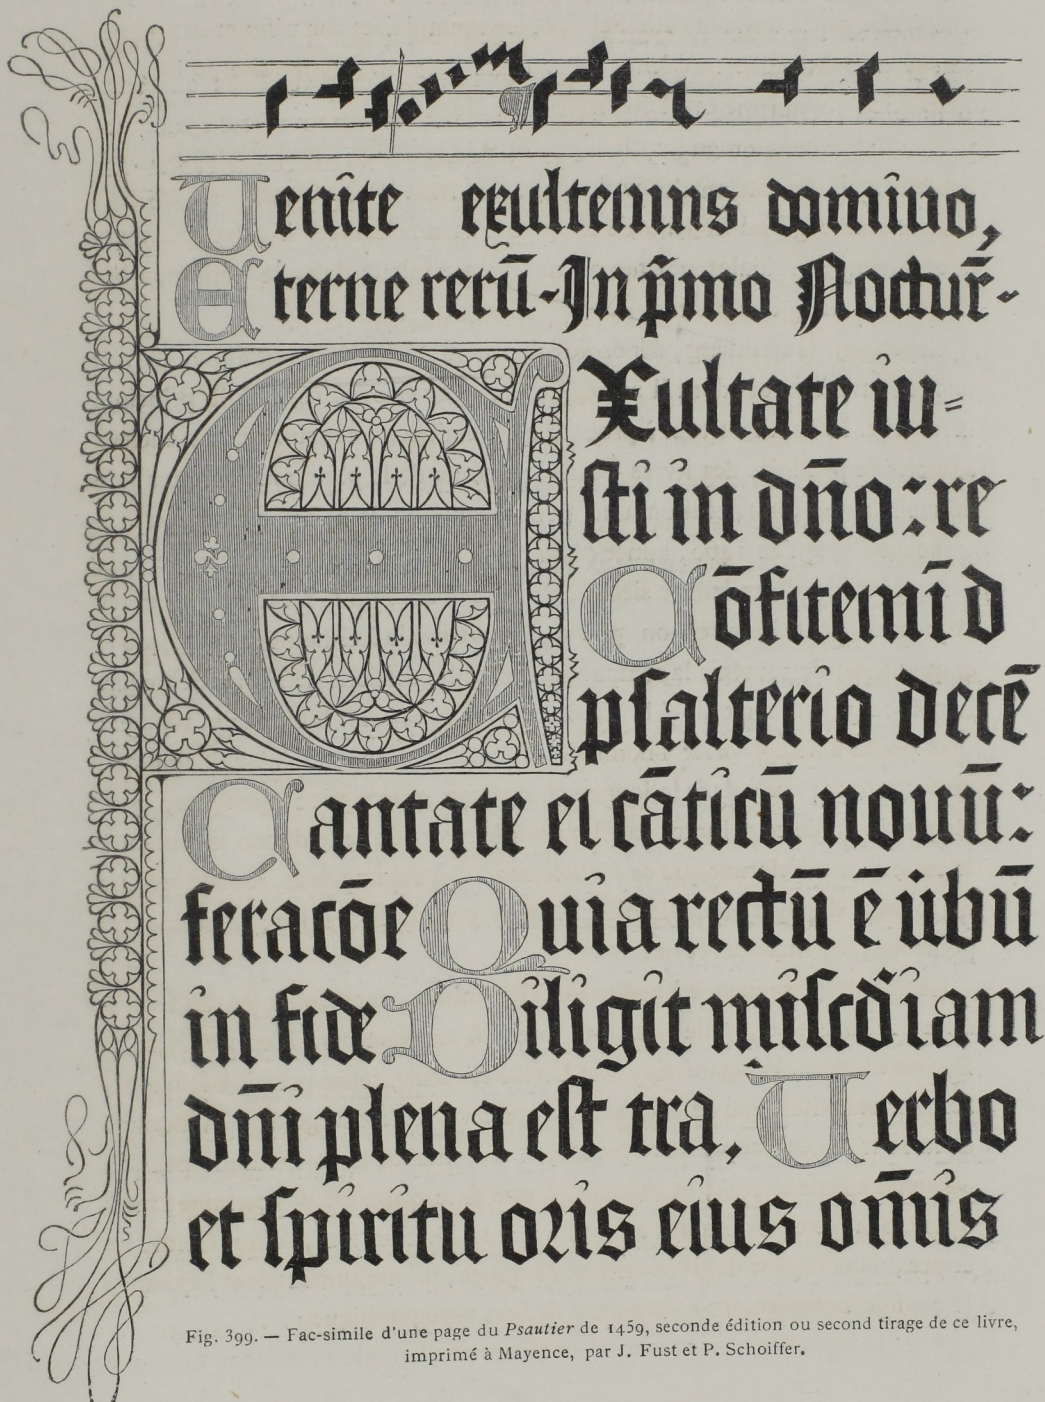 Uenite exultemus domino,
Eterne rerū. In p̄mo Nocturn̄.
EXultate iu=
sti in dn̄o: re
Cōfitemī d
psalterio decē
Cantate ei cāticū nouū:
feracōe Quia rectū ē ūbū
in fide Diligit misc̄diam
dn̄i plena est tra, Uerbo
et spiritu oris eius om̄is
Fig. 399. — Fac-simile d'une page du Psautier de 1459, seconde édition ou second tirage de ce livre,
imprimé à Mayence, par J. Fust et P. Schoiffer.